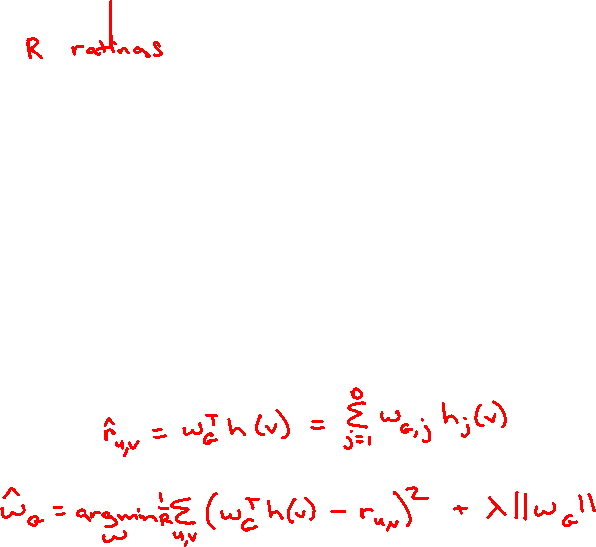 R ratings
r̂_{u,v} = w_G^T h(v) = Σ_{j=1}^{D} w_{G,j} h_j(v)
ŵ_G = argmin_w 1/R Σ_{u,v} (w_G^T h(v) - r_{u,v})^2 + λ||w_G||